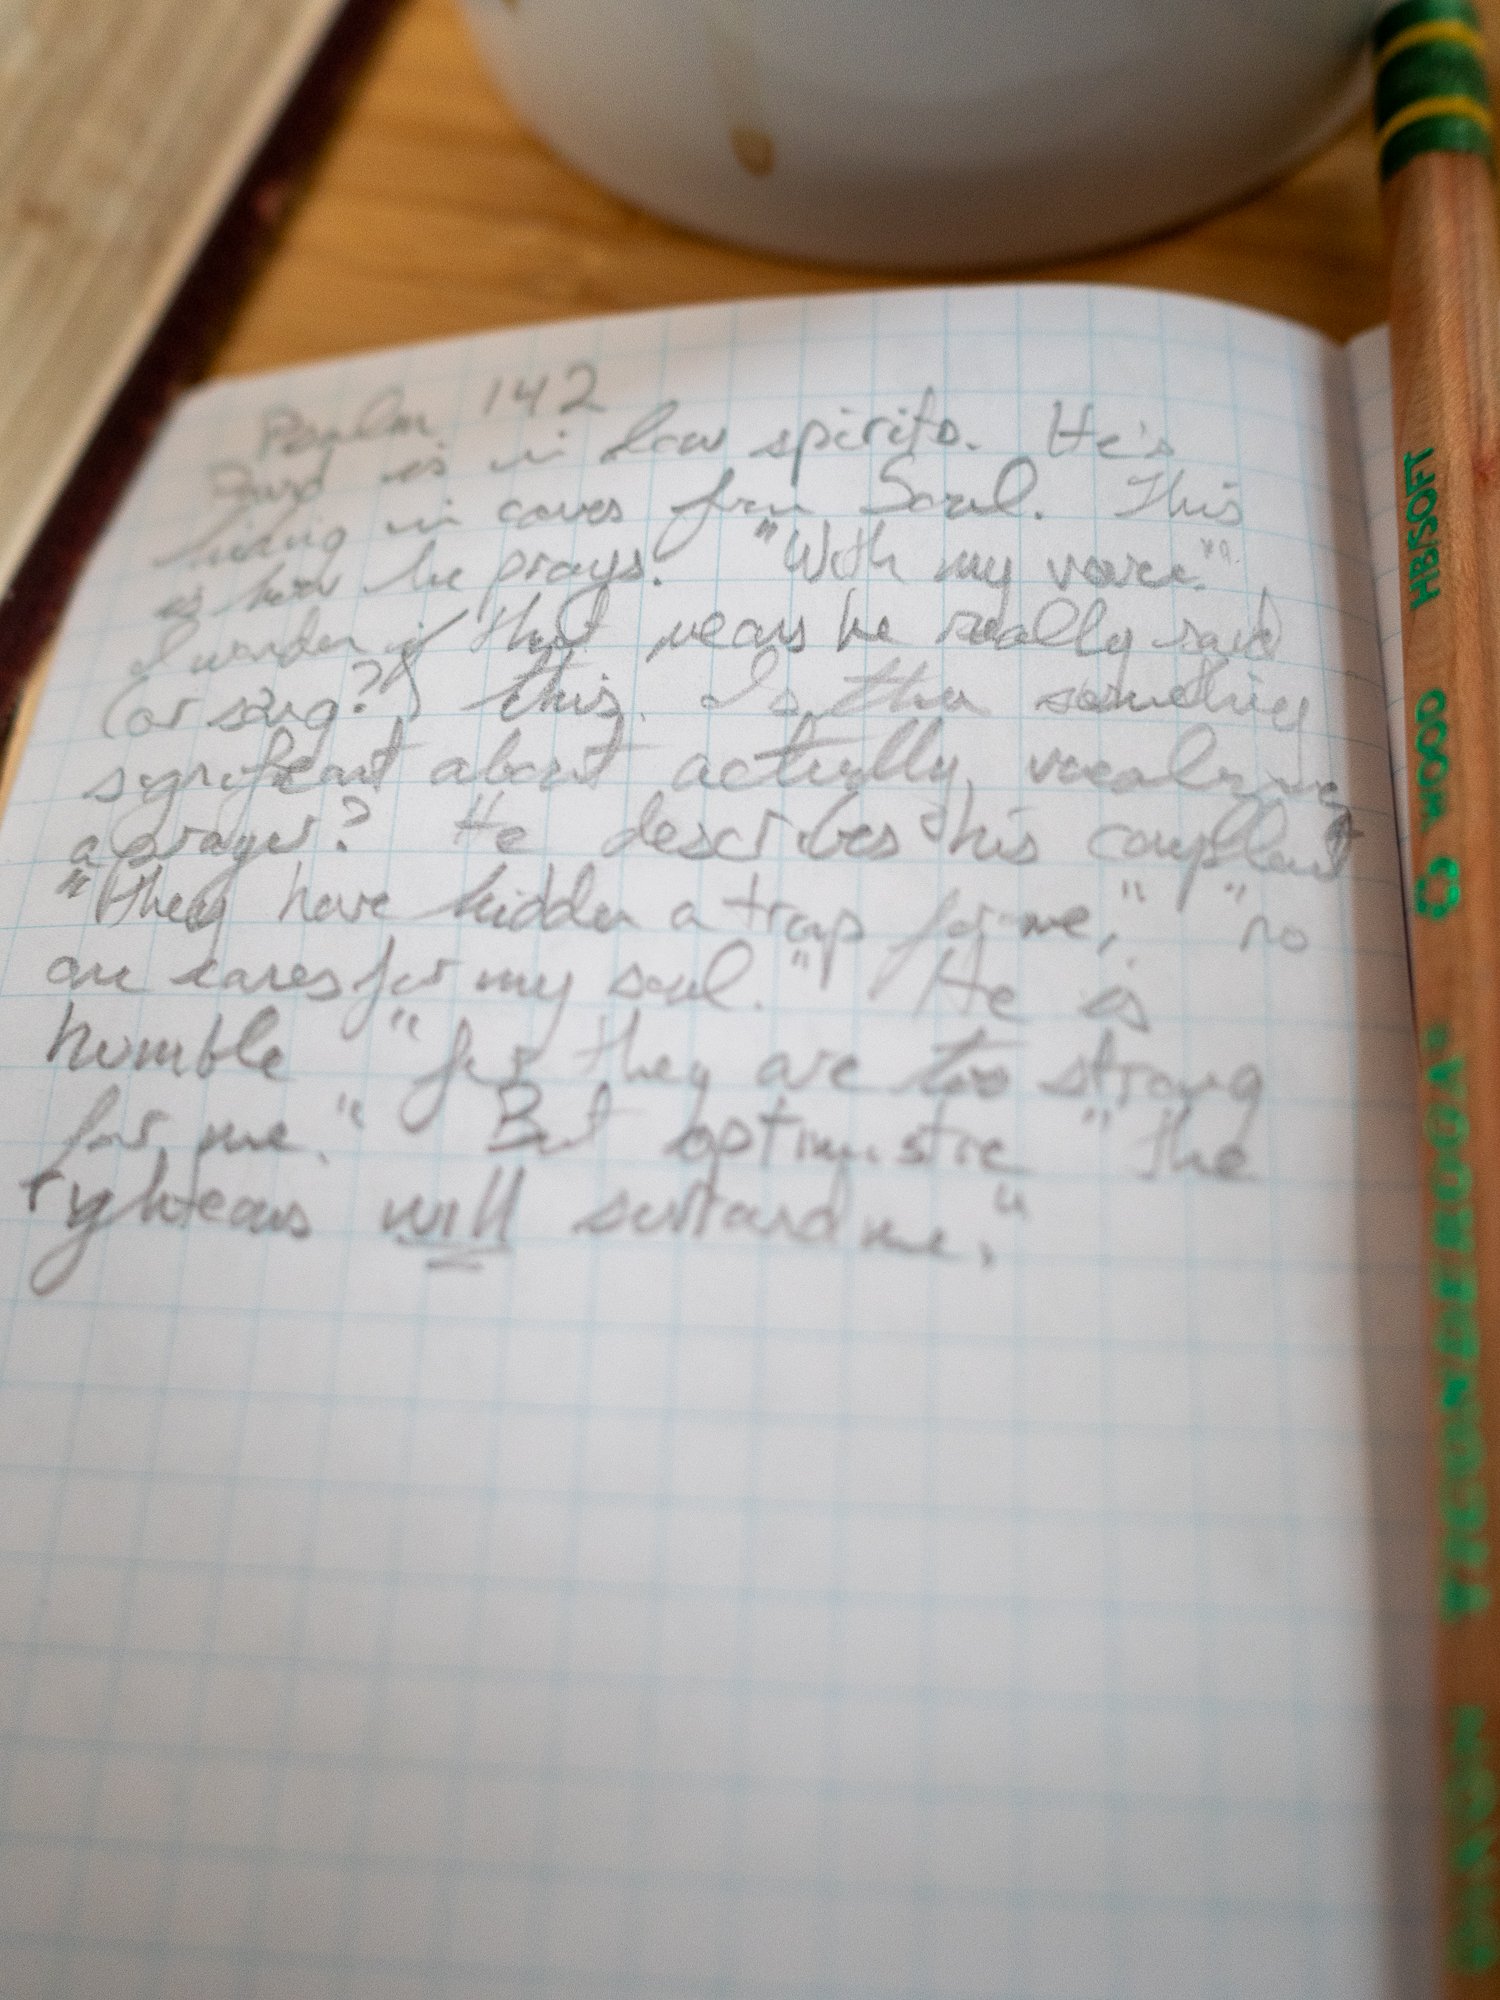 Psalm 142
David is in low spirits. He's
hiding in caves from Saul. This
is how he prays. "With my voice."
I wonder if that means he really said
(or sang?) this. Is there something
significant about actually vocalizing
a prayer? He describes his complaint
"They have hidden a trap for me," "no
one cares for my soul." He is
humble "for they are too strong
for me." But optimistic "the
righteous will surround me."
HB/SOFT
WOOD
TICONDEROGA®
DIXON